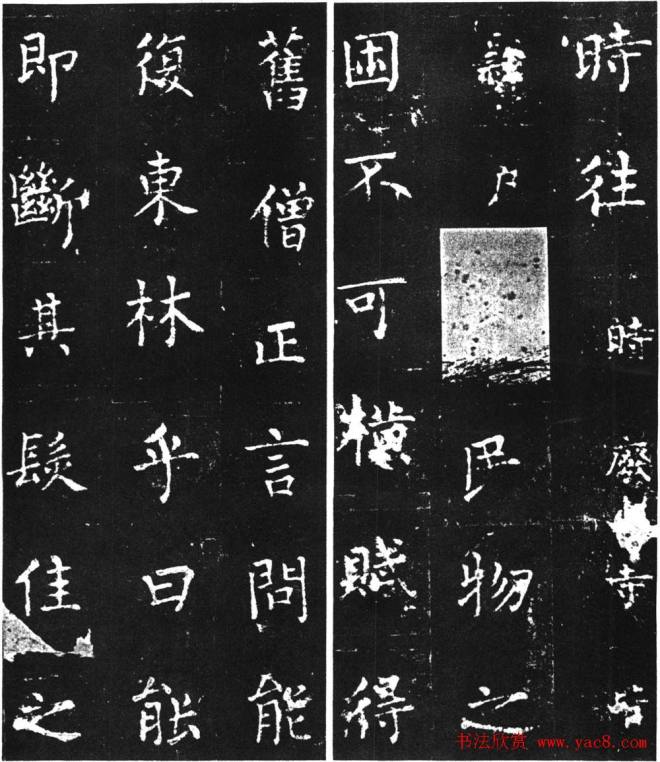 時往時廢寺
户民物之
困不可横賦得
舊僧正言問能
復東林乎曰能
即斷其髮佳之
书法欣赏 www.yac8.com